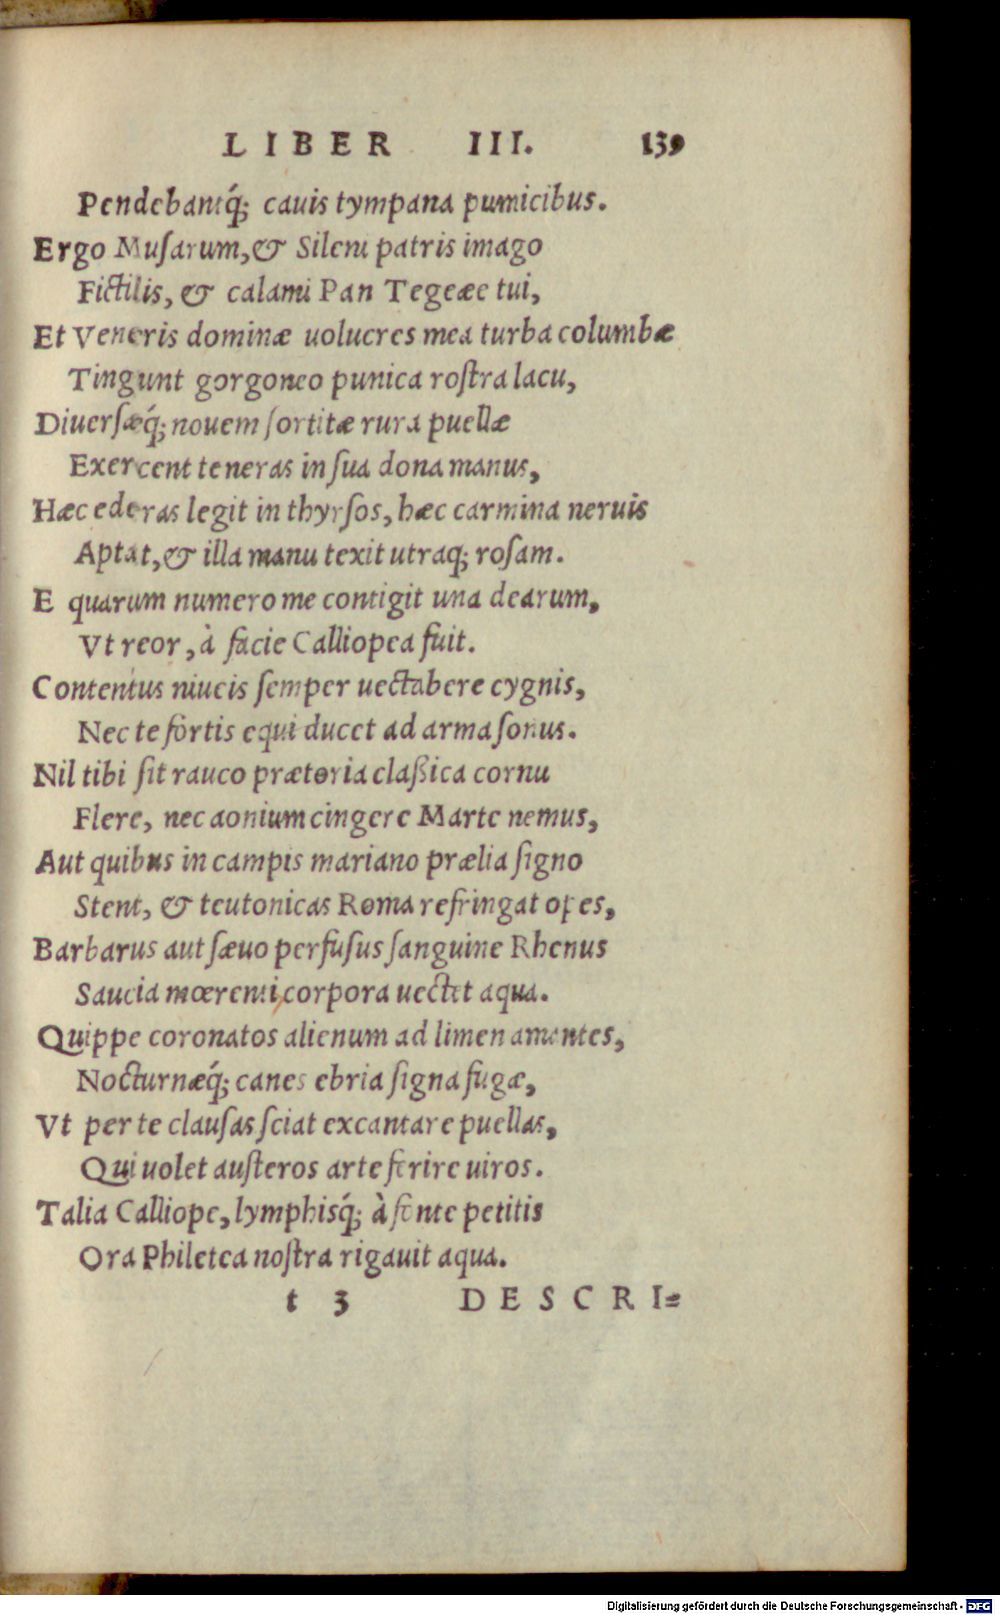 LIBER III. 139
Pendebantq́; cauis tympana pumicibus.
Ergo Musarum, & Sileni patris imago
Fictilis, & calami Pan Tegeæe tui,
Et Veneris dominæ uolucres mea turba columbæ
Tingunt gorgoneo punica rostra lacu,
Diuersæq́; nouem sortitæ rura puellæ
Exercent teneras in sua dona manus,
Hæc ederas legit in thyrsos, hæc carmina neruis
Aptat, & illa manu texit utraq; rosam.
E quarum numero me contigit una dearum,
Vt reor, à facie Calliopea fuit.
Contentus niueis semper uectabere cygnis,
Nec te fortis equi ducet ad arma sonus.
Nil tibi sit rauco prætoria classica cornu
Flere, nec aonium cingere Marte nemus,
Aut quibus in campis mariano prælia signo
Stent, & teutonicas Roma refringat opes,
Barbarus aut sæuo perfusus sanguine Rhenus
Saucia mœrenti corpora uectet aqua.
Quippe coronatos alienum ad limen amantes,
Nocturnæq́; canes ebria signa fugæ,
Vt per te clausas sciat excantare puellas,
Qui uolet austeros arte ferire uiros.
Talia Calliope, lymphisq́; à fonte petitis
Ora Philetea nostra rigauit aqua.
t 3 DESCRI=
Digitalisierung gefördert durch die Deutsche Forschungsgemeinschaft - DFG